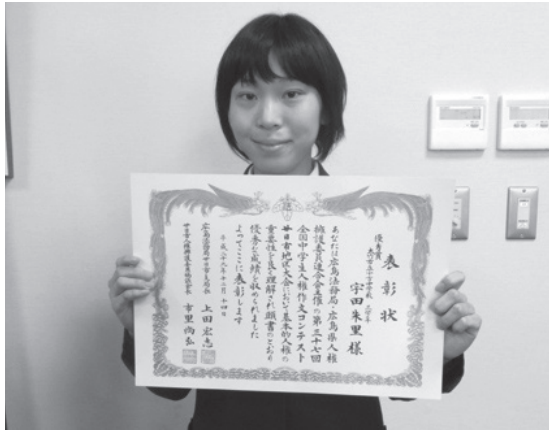 表彰状
優秀賞
宇田朱里様
あなたは広島法務局・広島県人権
擁護委員連合会主催の第三十七回
全国中学生人権作文コンテスト
廿日市地区大会において基本的人権の
重要性を良く理解され頭書のとおり
優秀な成績を収められました
よってここに表彰します
広島法務局廿日市支局長 上田宏志
廿日市人権擁護委員協議会会長 市里尚弘